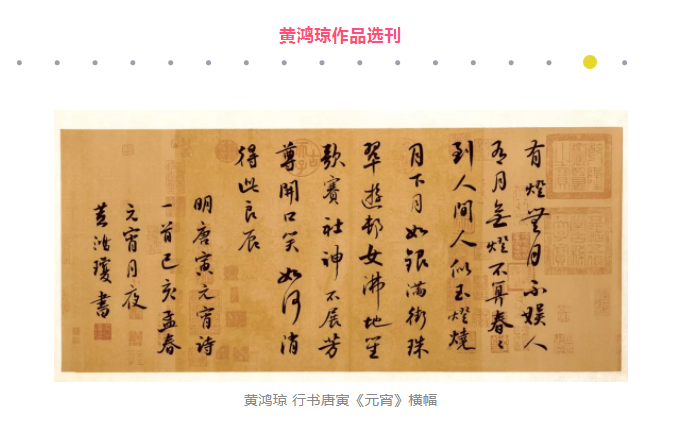 黄鸿琼作品选刊
有燈無月不娱人
有月無燈不算春〻
到人間人似玉燈燒
月下月如銀滿街珠
翠遊邨女沸地笙
歌賽社神不展芳
尊開口笑如何消
得此良辰
明唐寅元宵詩
一首己亥孟春
元宵月夜
黄鴻瓊書
黄鸿琼 行书唐寅《元宵》横幅